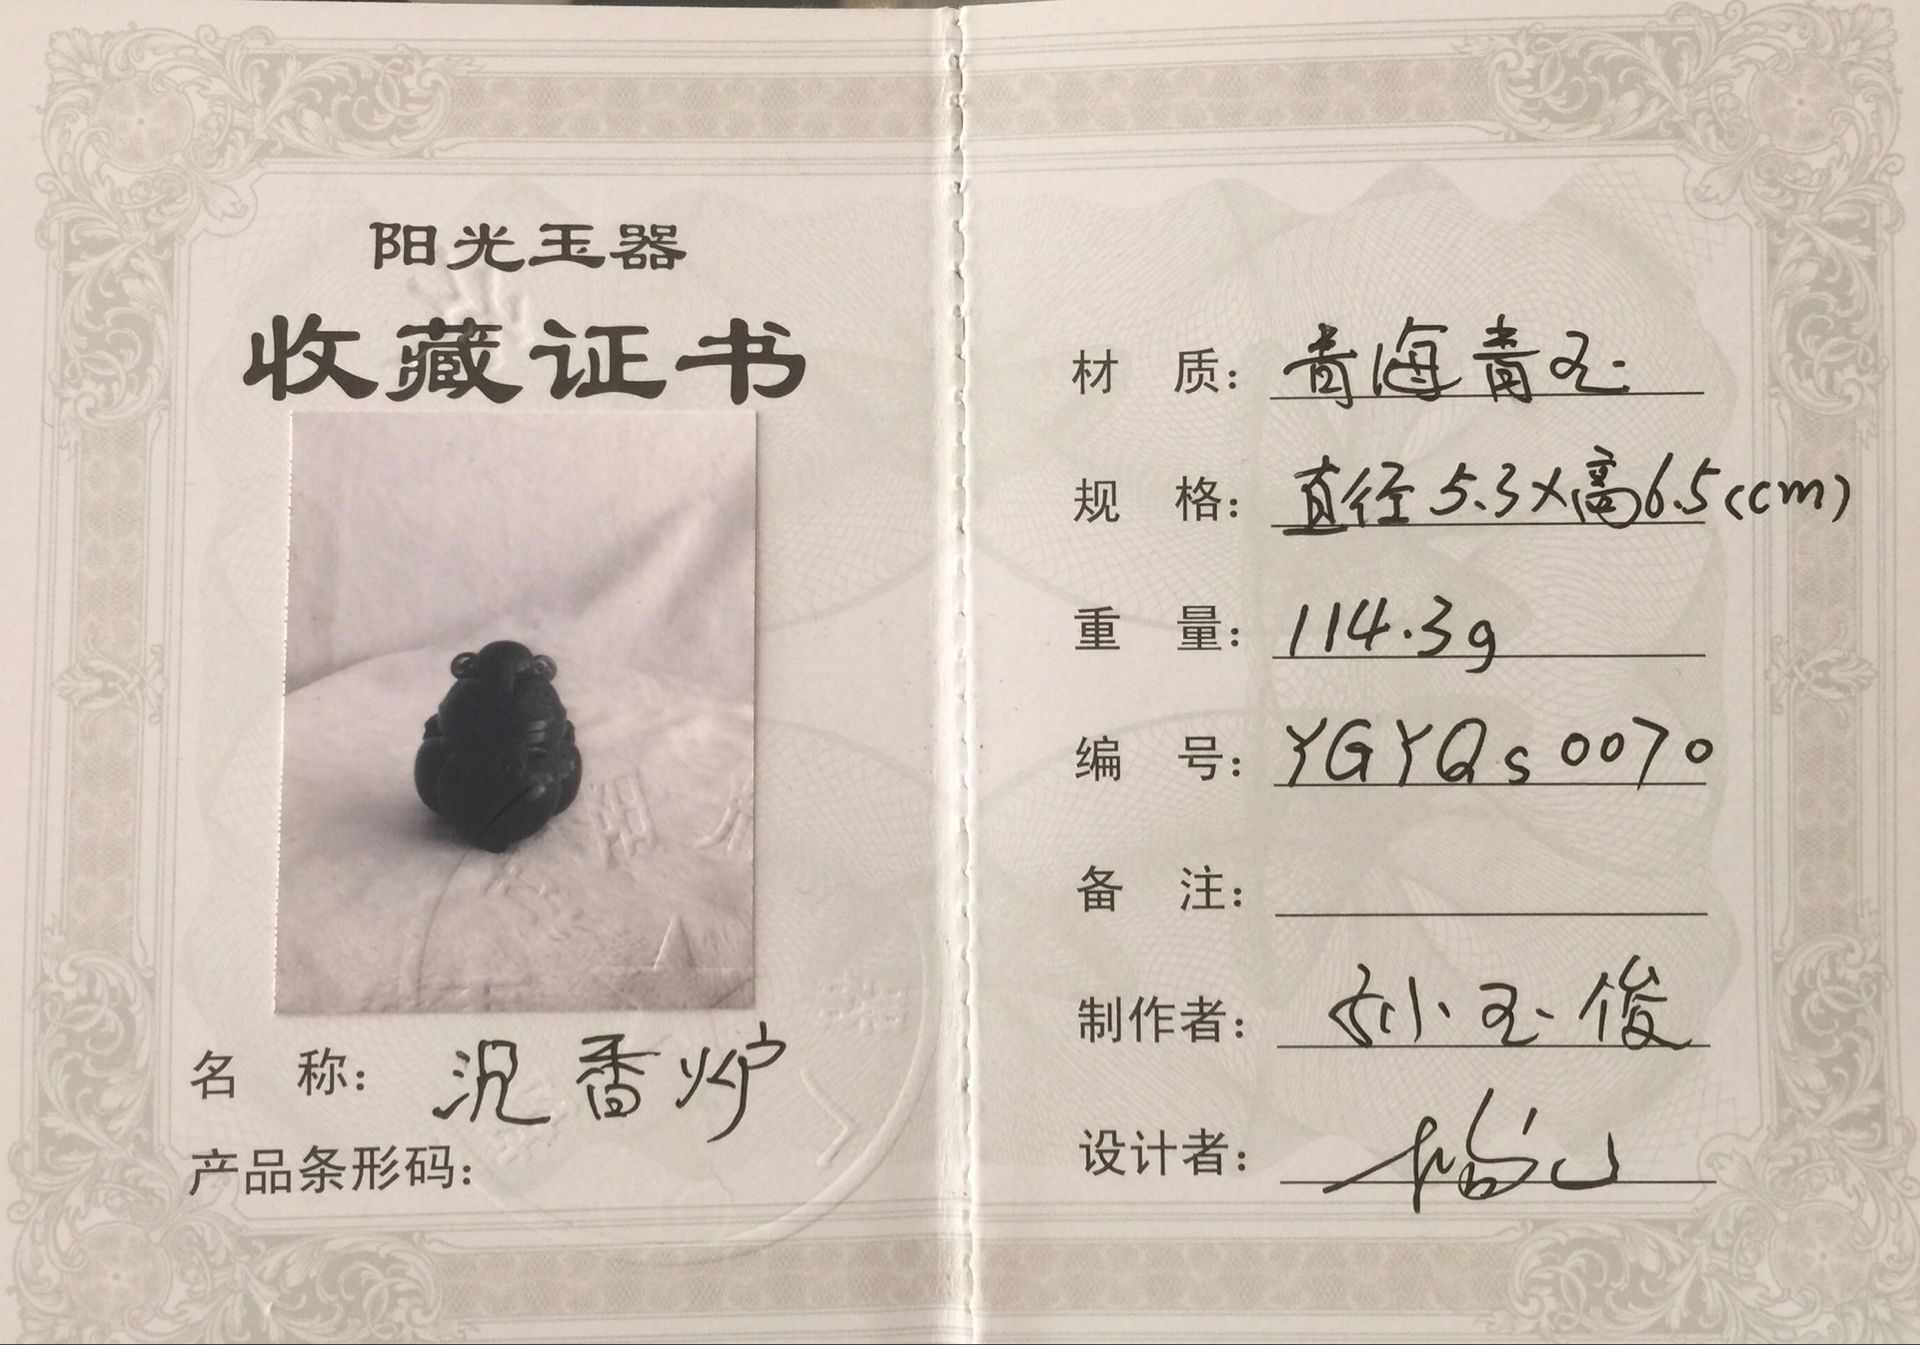 阳光玉器
收藏证书
名 称: 沉香炉
产品条形码:
材 质: 青海青玉
规 格: 直径5.3×高6.5(cm)
重 量: 114.3g
编 号: YGYQs0070
备 注:
制作者: 孙玉俊
设计者: